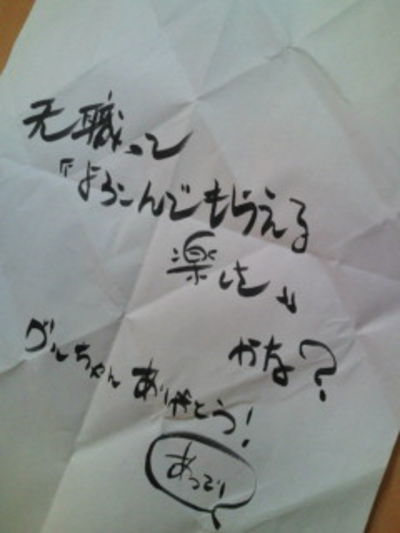 天職って
『よろこんでもらえる
楽しさ』
かな?
グンちゃん ありがとう!